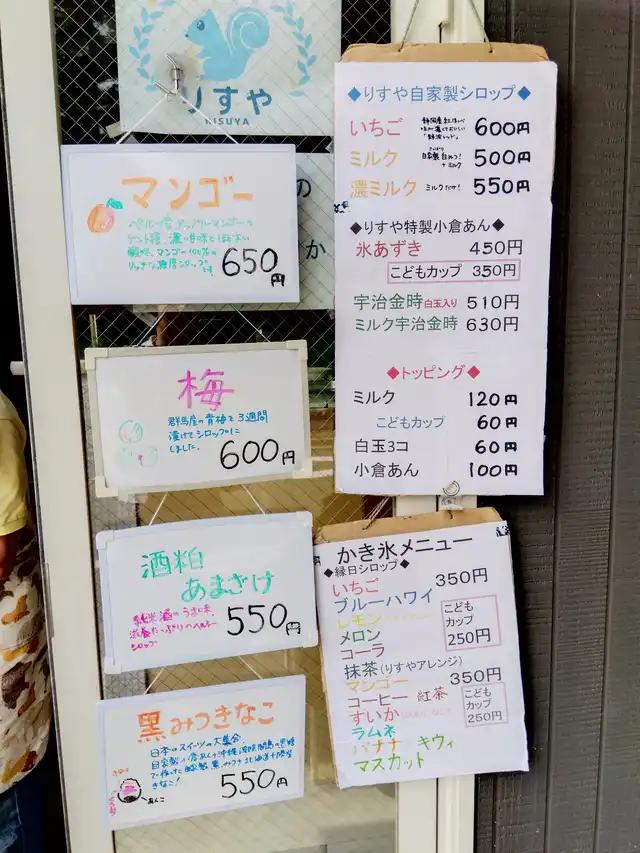 りすや
RISUYA
の
か
マンゴー
650円
梅
群馬産の青梅を3週間
漬けてシロップに
しました。
600円
酒粕
あまざけ
純米酒のうま味、
栄養たっぷりのヘルシー
シロップ
550円
黒みつきなこ
日本のスイーツの大集合
きなこ!
550円
あんこ
◆りすや自家製シロップ◆
いちご 600円
ミルク 500円
濃ミルク ミルクだけ! 550円
◆りすや特製小倉あん◆
氷あずき 450円
こどもカップ 350円
宇治金時 白玉入り 510円
ミルク宇治金時 630円
◆トッピング◆
ミルク 120円
こどもカップ 60円
白玉3コ 60円
小倉あん 100円
かき氷メニュー
◆縁日シロップ◆
いちご 350円
ブルーハワイ
レモン
メロン
コーラ
こども
カップ
250円
抹茶(りすやアレンジ)
マンゴー 350円
コーヒー 紅茶
すいか
ラムネ
バナナ キウィ
マスカット
こども
カップ
250円